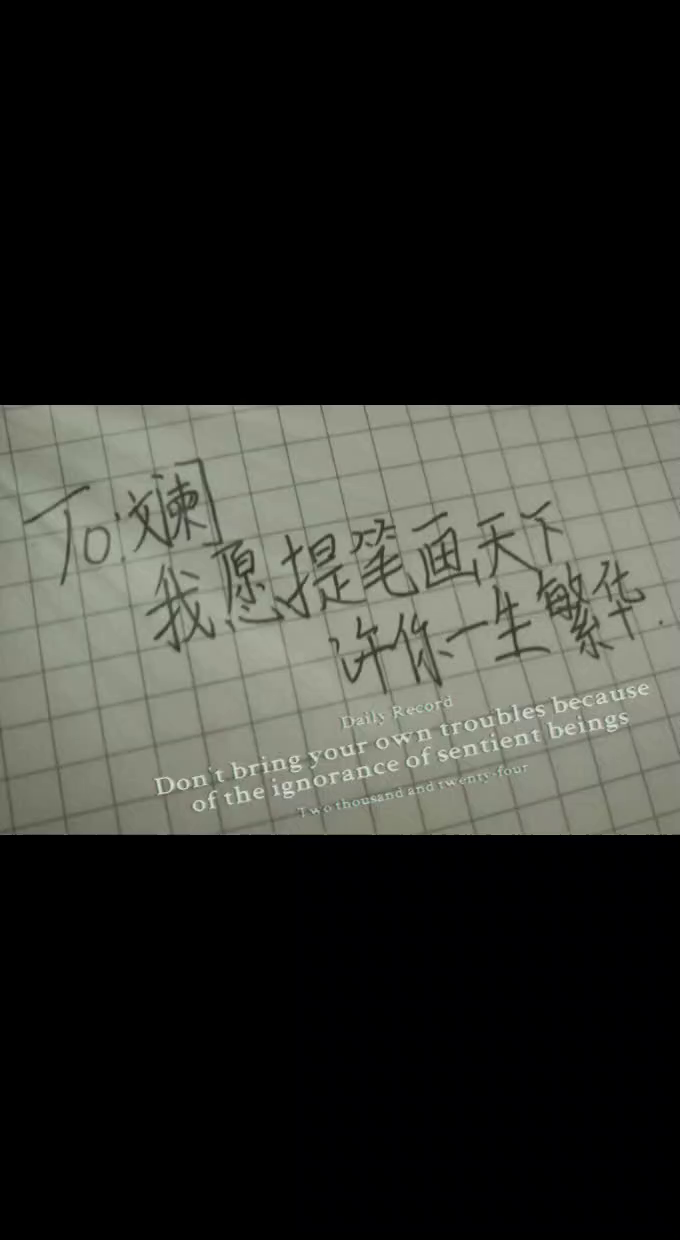 To:斓
我愿提笔画天下
许你一生繁华.
Daily Record
Don't bring your own troubles because
of the ignorance of sentient beings
Two thousand and twenty-four